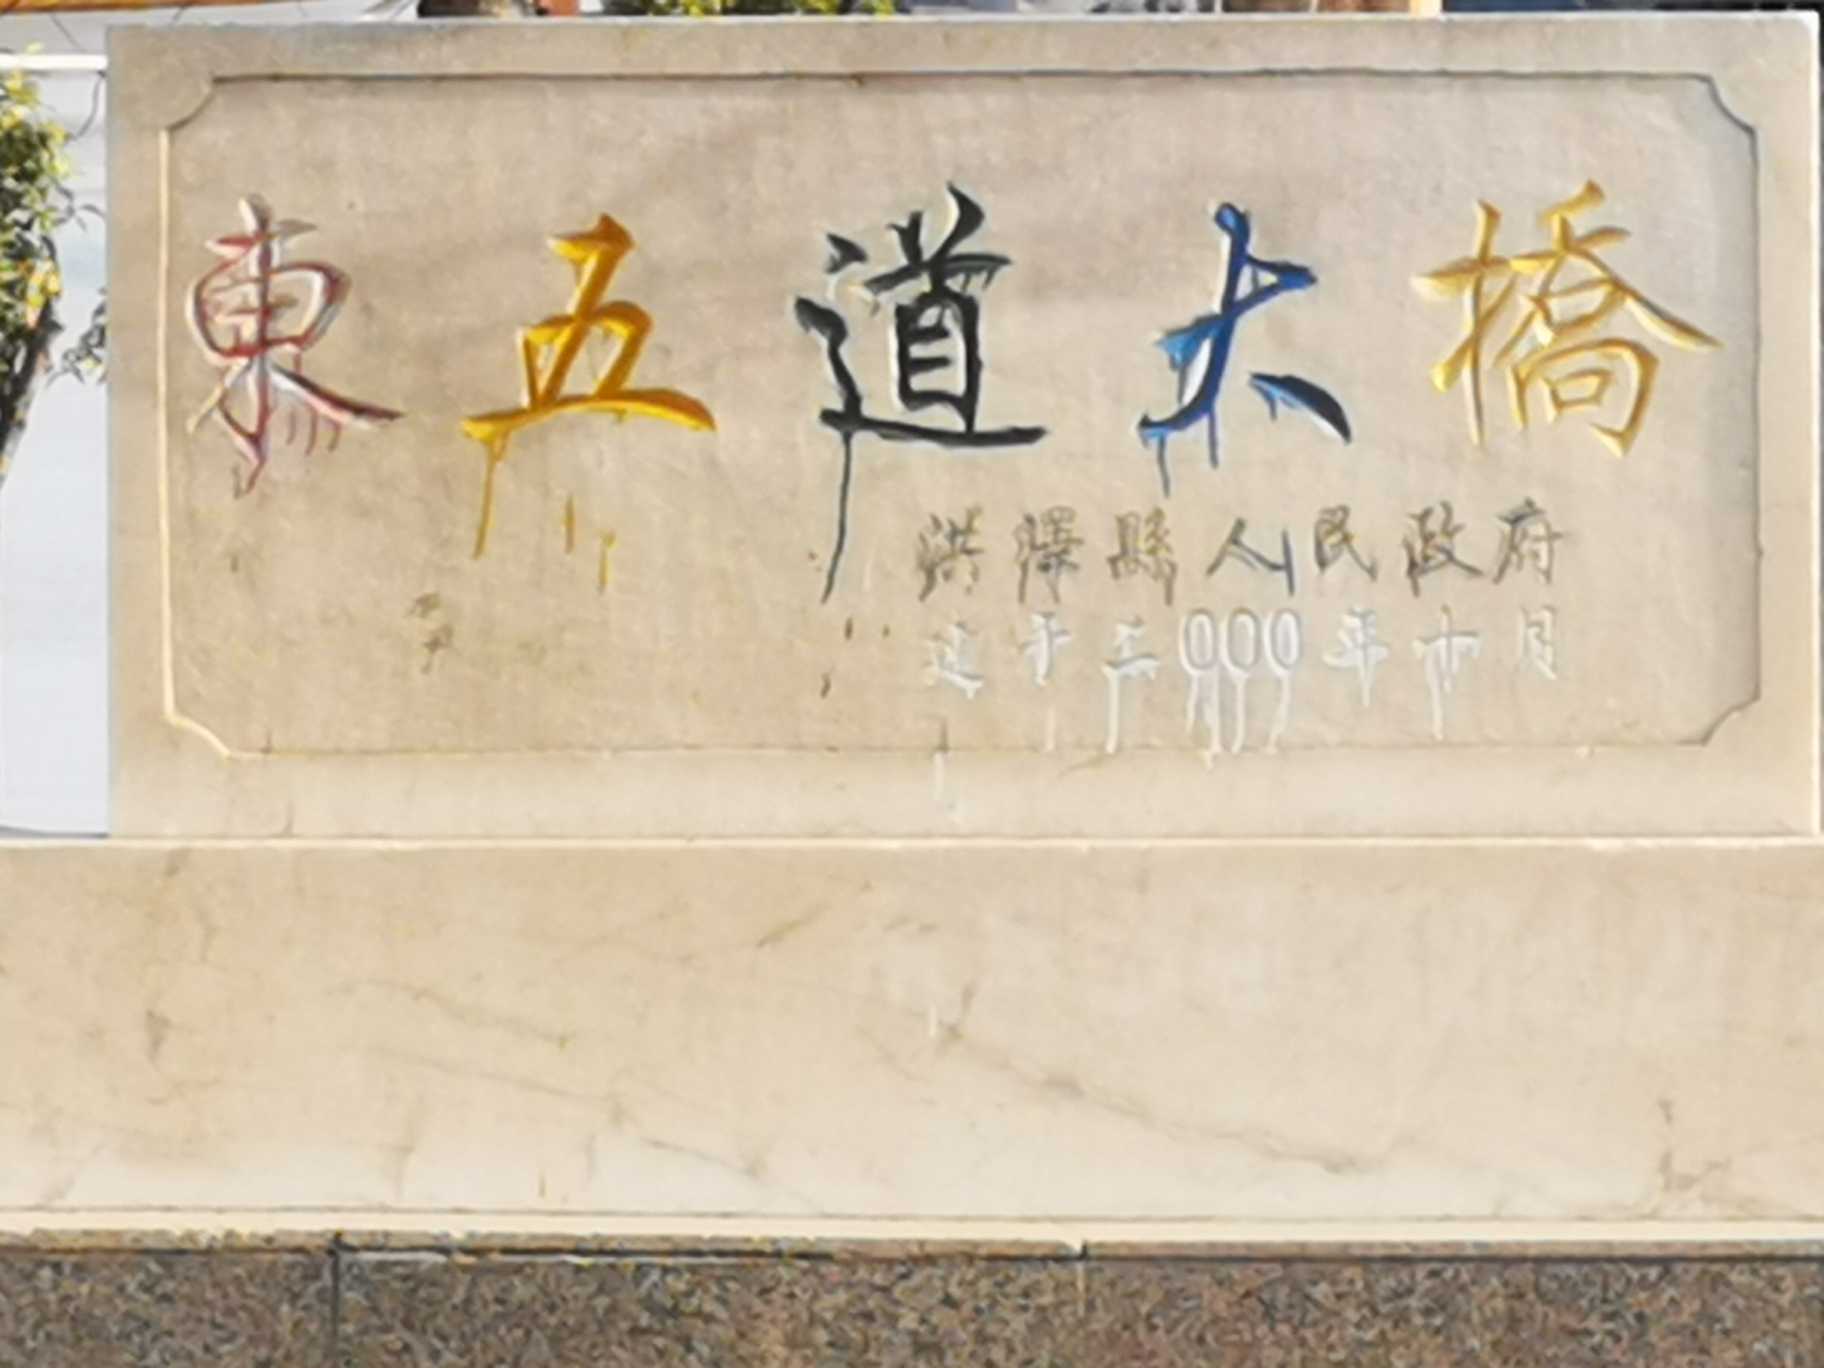 東五道大橋
洪澤縣人民政府
建于二000年十月